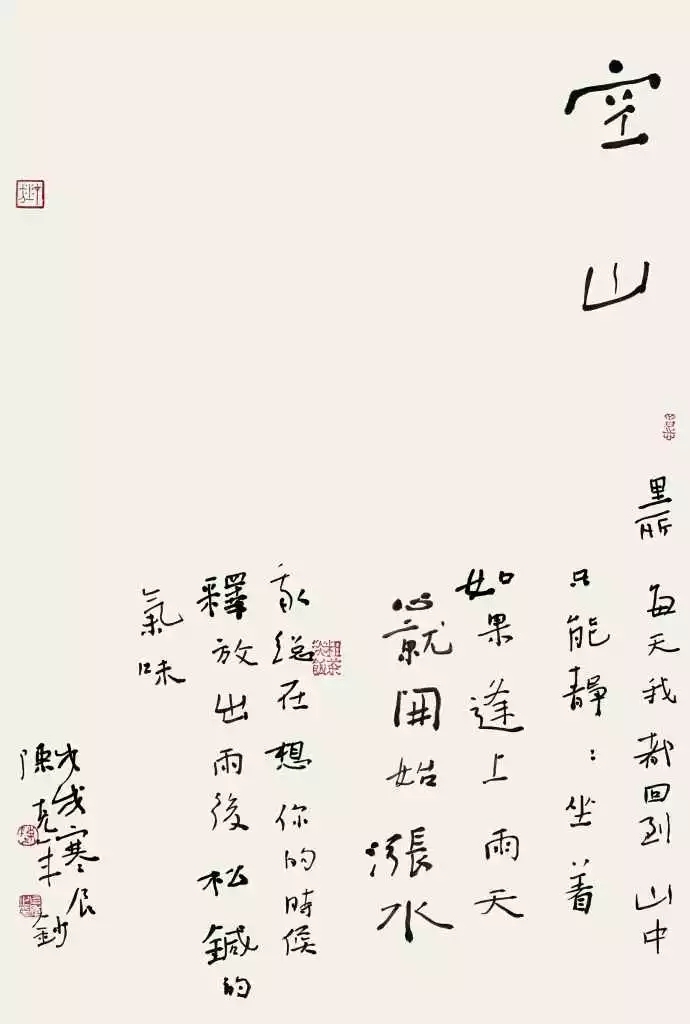 空山
每天我都回到山中
只能靜：坐着
如果逢上雨天
心就開始漲水
總在想你的時候
釋放出雨後松鍼的
氣味
戊戌寒辰
陳克年鈔